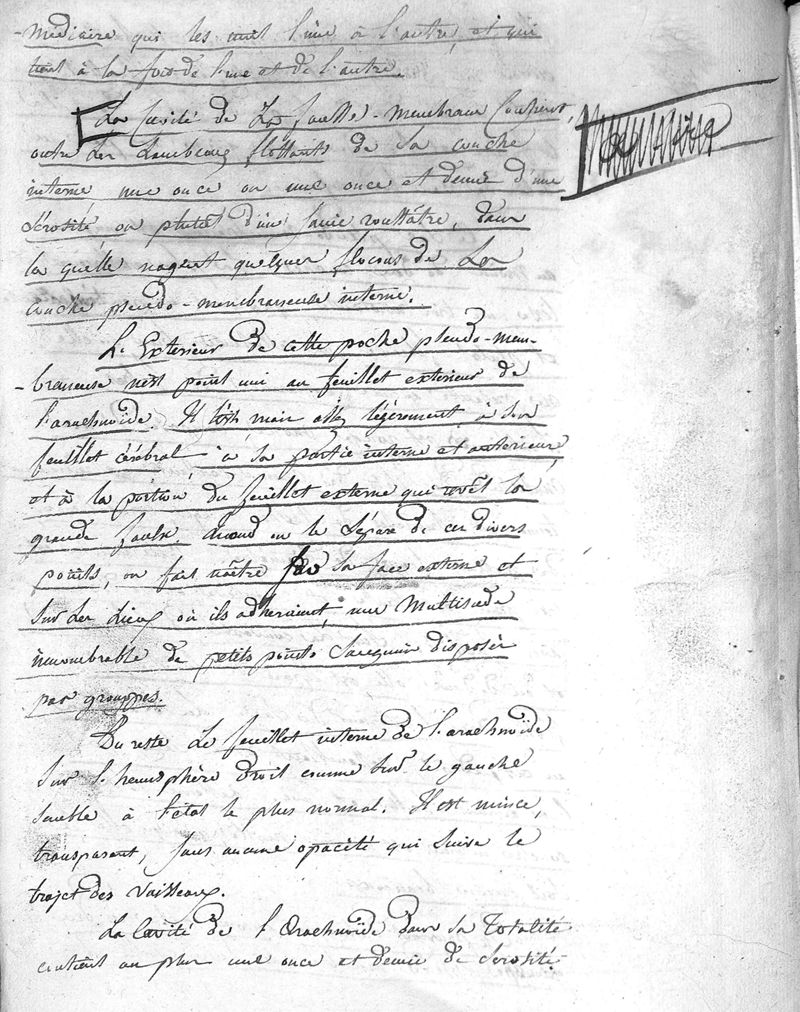 -médiaire qui les unit l'une à l'autre, et qui
tient à la fois de l'une et de l'autre.
La Cavité de La fausse-membrane Contient,
outre Les Lambeaux flottants de Sa couche
interne une once ou une once et demie d'une
Sérosité ou plutôt d'un Sanie roussâtre, dans
la quelle nagent quelques flocons de La
couche pseudo-membraneuse interne.
L'Exterieur de cette poche pseudo-mem-
-braneuse n'est point uni au feuillet exterieur de
l'arachnoïde. Il l'est mais assez légèrement à son
feuillet cérébral à sa partie interne et anterieure,
et à la portion du feuillet externe qui revêt la
grande faulx. Quand on le Sépare de ces divers
points, on fait naître sur sa face externe et
Sur Les Lieux où ils adheraient, une Multitude
innombrable de petits points Sanguins disposés
par grouppes.
Du reste Le feuillet interne de l'arachnoïde
Sur l'hemisphère droit comme Sur le gauche
Semble à l'etat le plus normal. Il est mince,
transparent, Sans aucune opacité qui Suive le
trajet des Vaisseaux.
La Cavité de l'Arachnoïde dans sa Totalité
contient au plus une once et demie de Sérosité